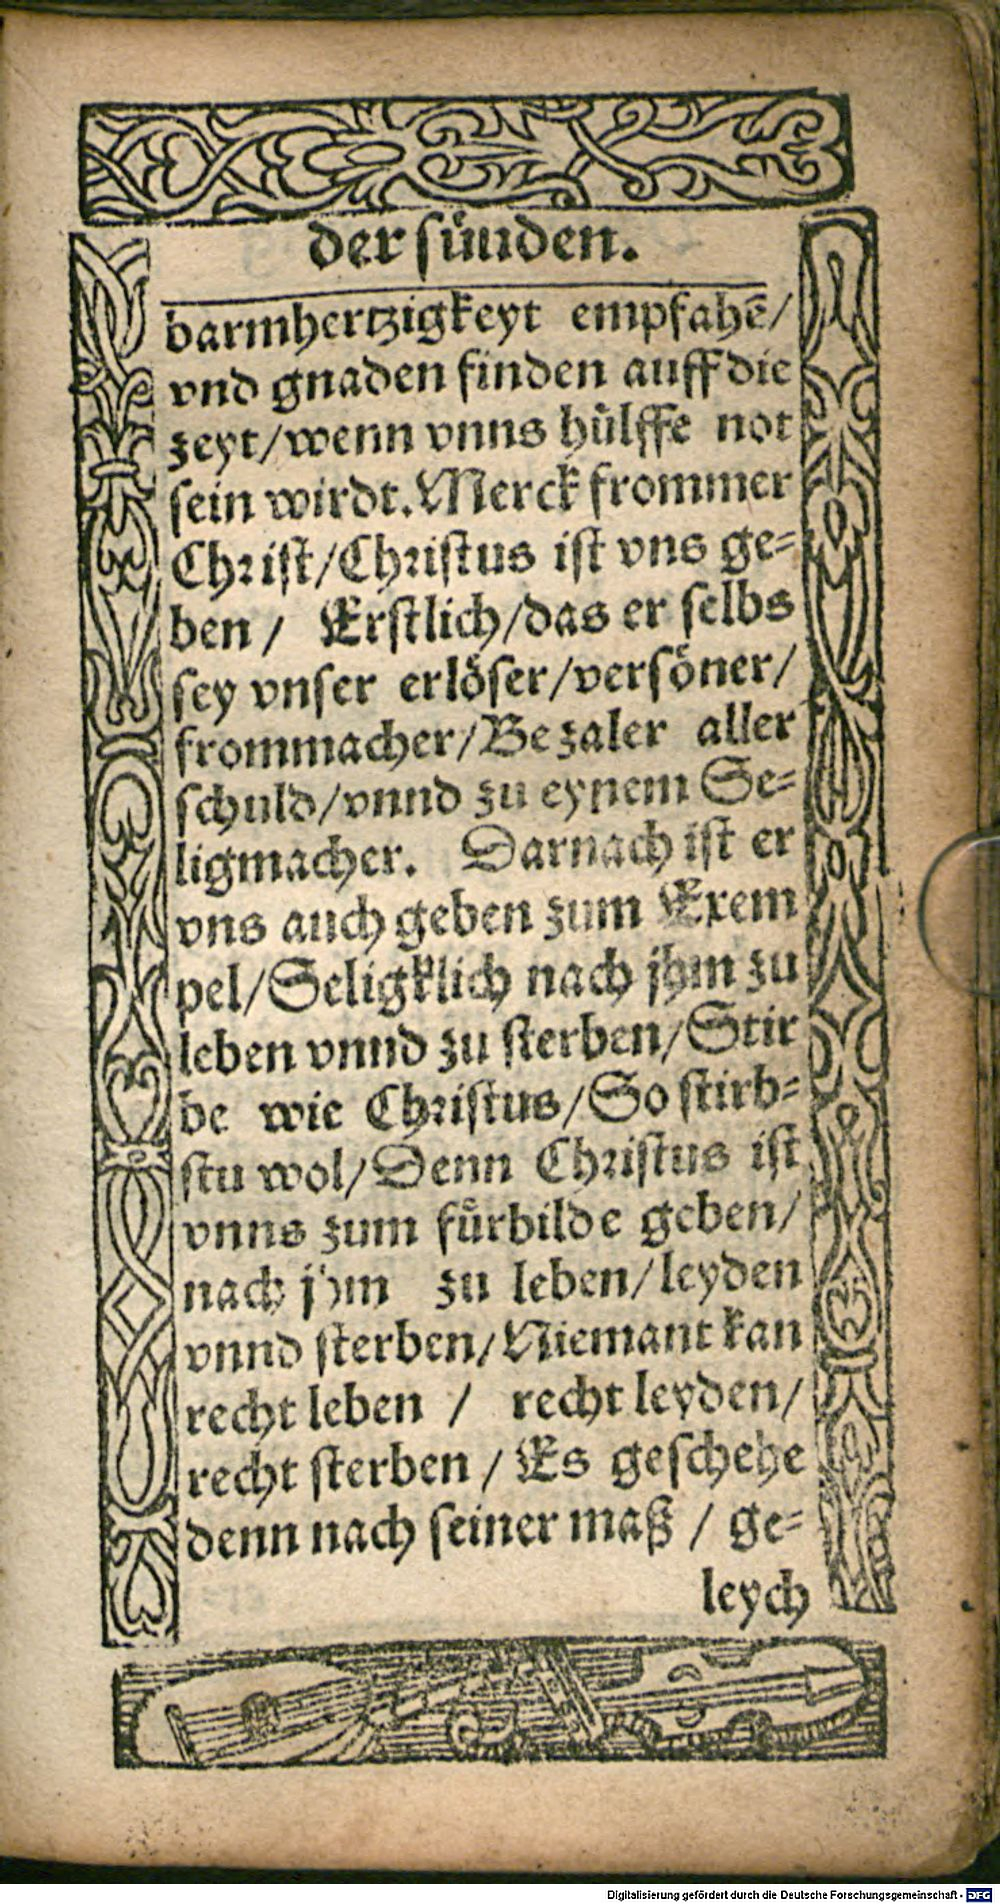 der sünden.
barmhertzigkeyt empfahē/
vnd gnaden finden auff die
zeyt/wenn vnns hülffe not
sein wirdt. Merck frommer
Christ/Christus ist vns ge-
ben/ Erstlich/das er selbs
sey vnser erlöser/versöner/
frommacher/Bezaler aller
schuld/vnnd zu eynem Se-
ligmacher. Darnach ist er
vns auch geben zum Exem
pel/Seligklich nach jhm zu
leben vnnd zu sterben/Stir
be wie Christus/So stirb-
stu wol/Denn Christus ist
vnns zum fürbilde geben/
nach jhm zu leben/leyden
vnnd sterben/Niemant kan
recht leben / recht leyden/
recht sterben / Es geschehe
denn nach seiner maß / ge-
leych
Digitalisierung gefördert durch die Deutsche Forschungsgemeinschaft - DFG